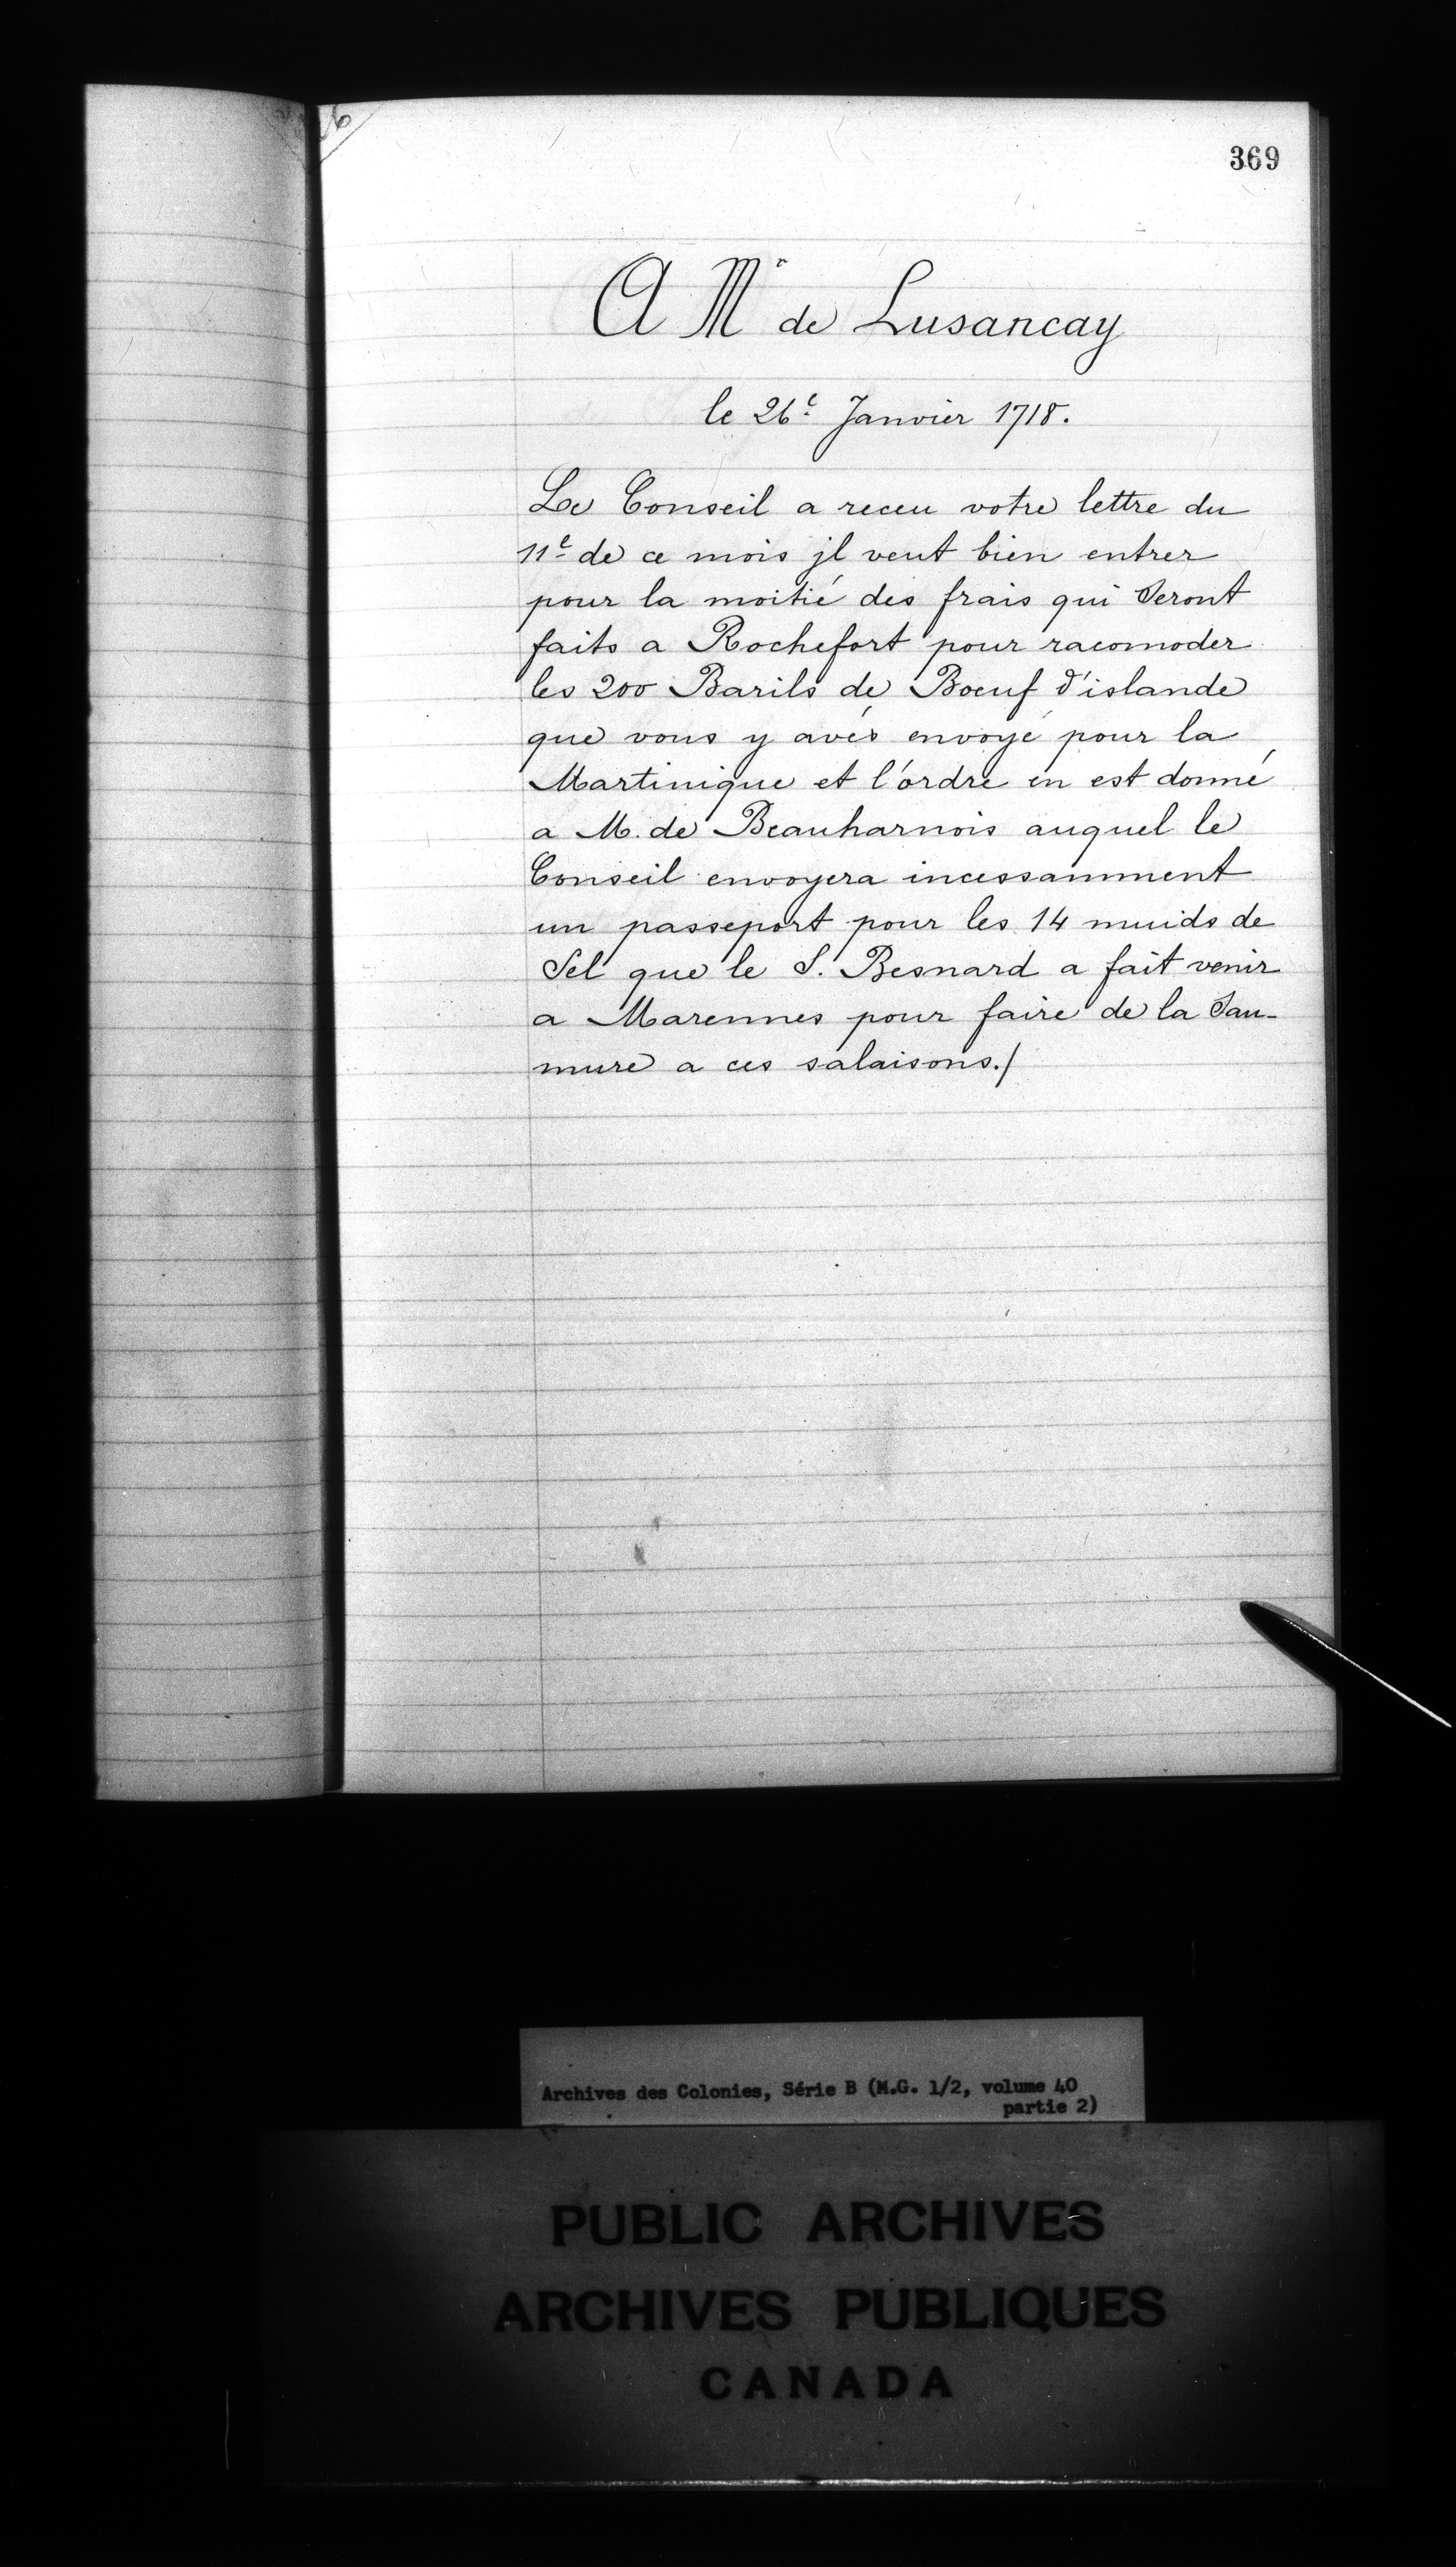 369
A Mr de Lusancay
le 26e Janvier 1718.
Le Conseil a receu votre lettre du
11e de ce mois jl veut bien entrer
pour la moitié des frais qui Seront
faits a Rochefort pour racomoder
les 200 Barils de Boeuf d'islande
que vous y avés envoyé pour la
Martinique et l'ordre en est donné
a M. de Beauharnois auquel le
Conseil envoyera incessamment
un passeport pour les 14 muids de
Sel que le S. Besnard a fait venir
a Marennes pour faire de la Sau-
mure a ces salaisons./
Archives des Colonies, Série B (M.G. 1/2, volume 40
partie 2)
PUBLIC ARCHIVES
ARCHIVES PUBLIQUES
CANADA